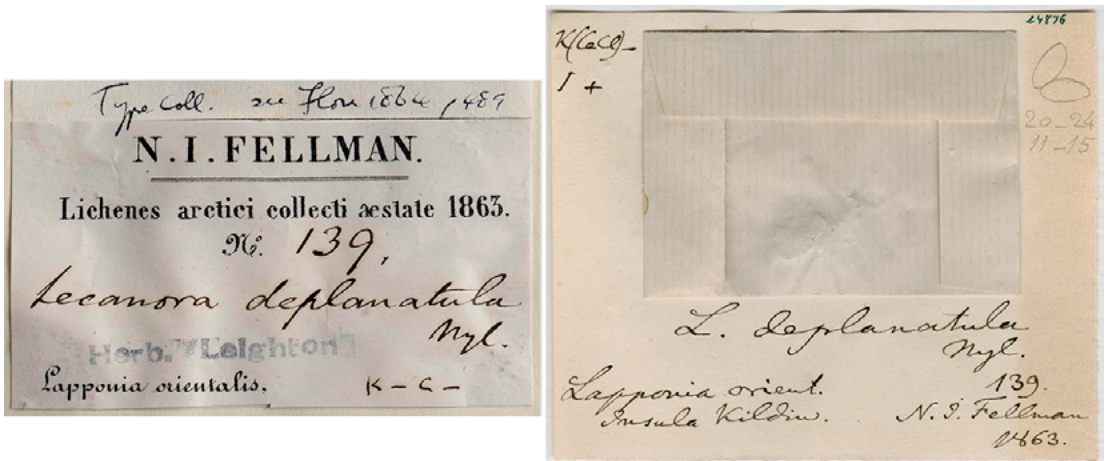 Type Coll. see Flora 1864, p489
N. I. FELLMAN.
Lichenes arctici collecti æstate 1863.
N. 139,
Lecanora deplanatula
Nyl.
Herb. Leighton
Lapponia orientalis.
K – C –
24876
K(CaCl)–
I +
20–24
11–15
L. deplanatula
Nyl.
Lapponia orient. 139.
Insula Kildin. N. I. Fellman
1863.